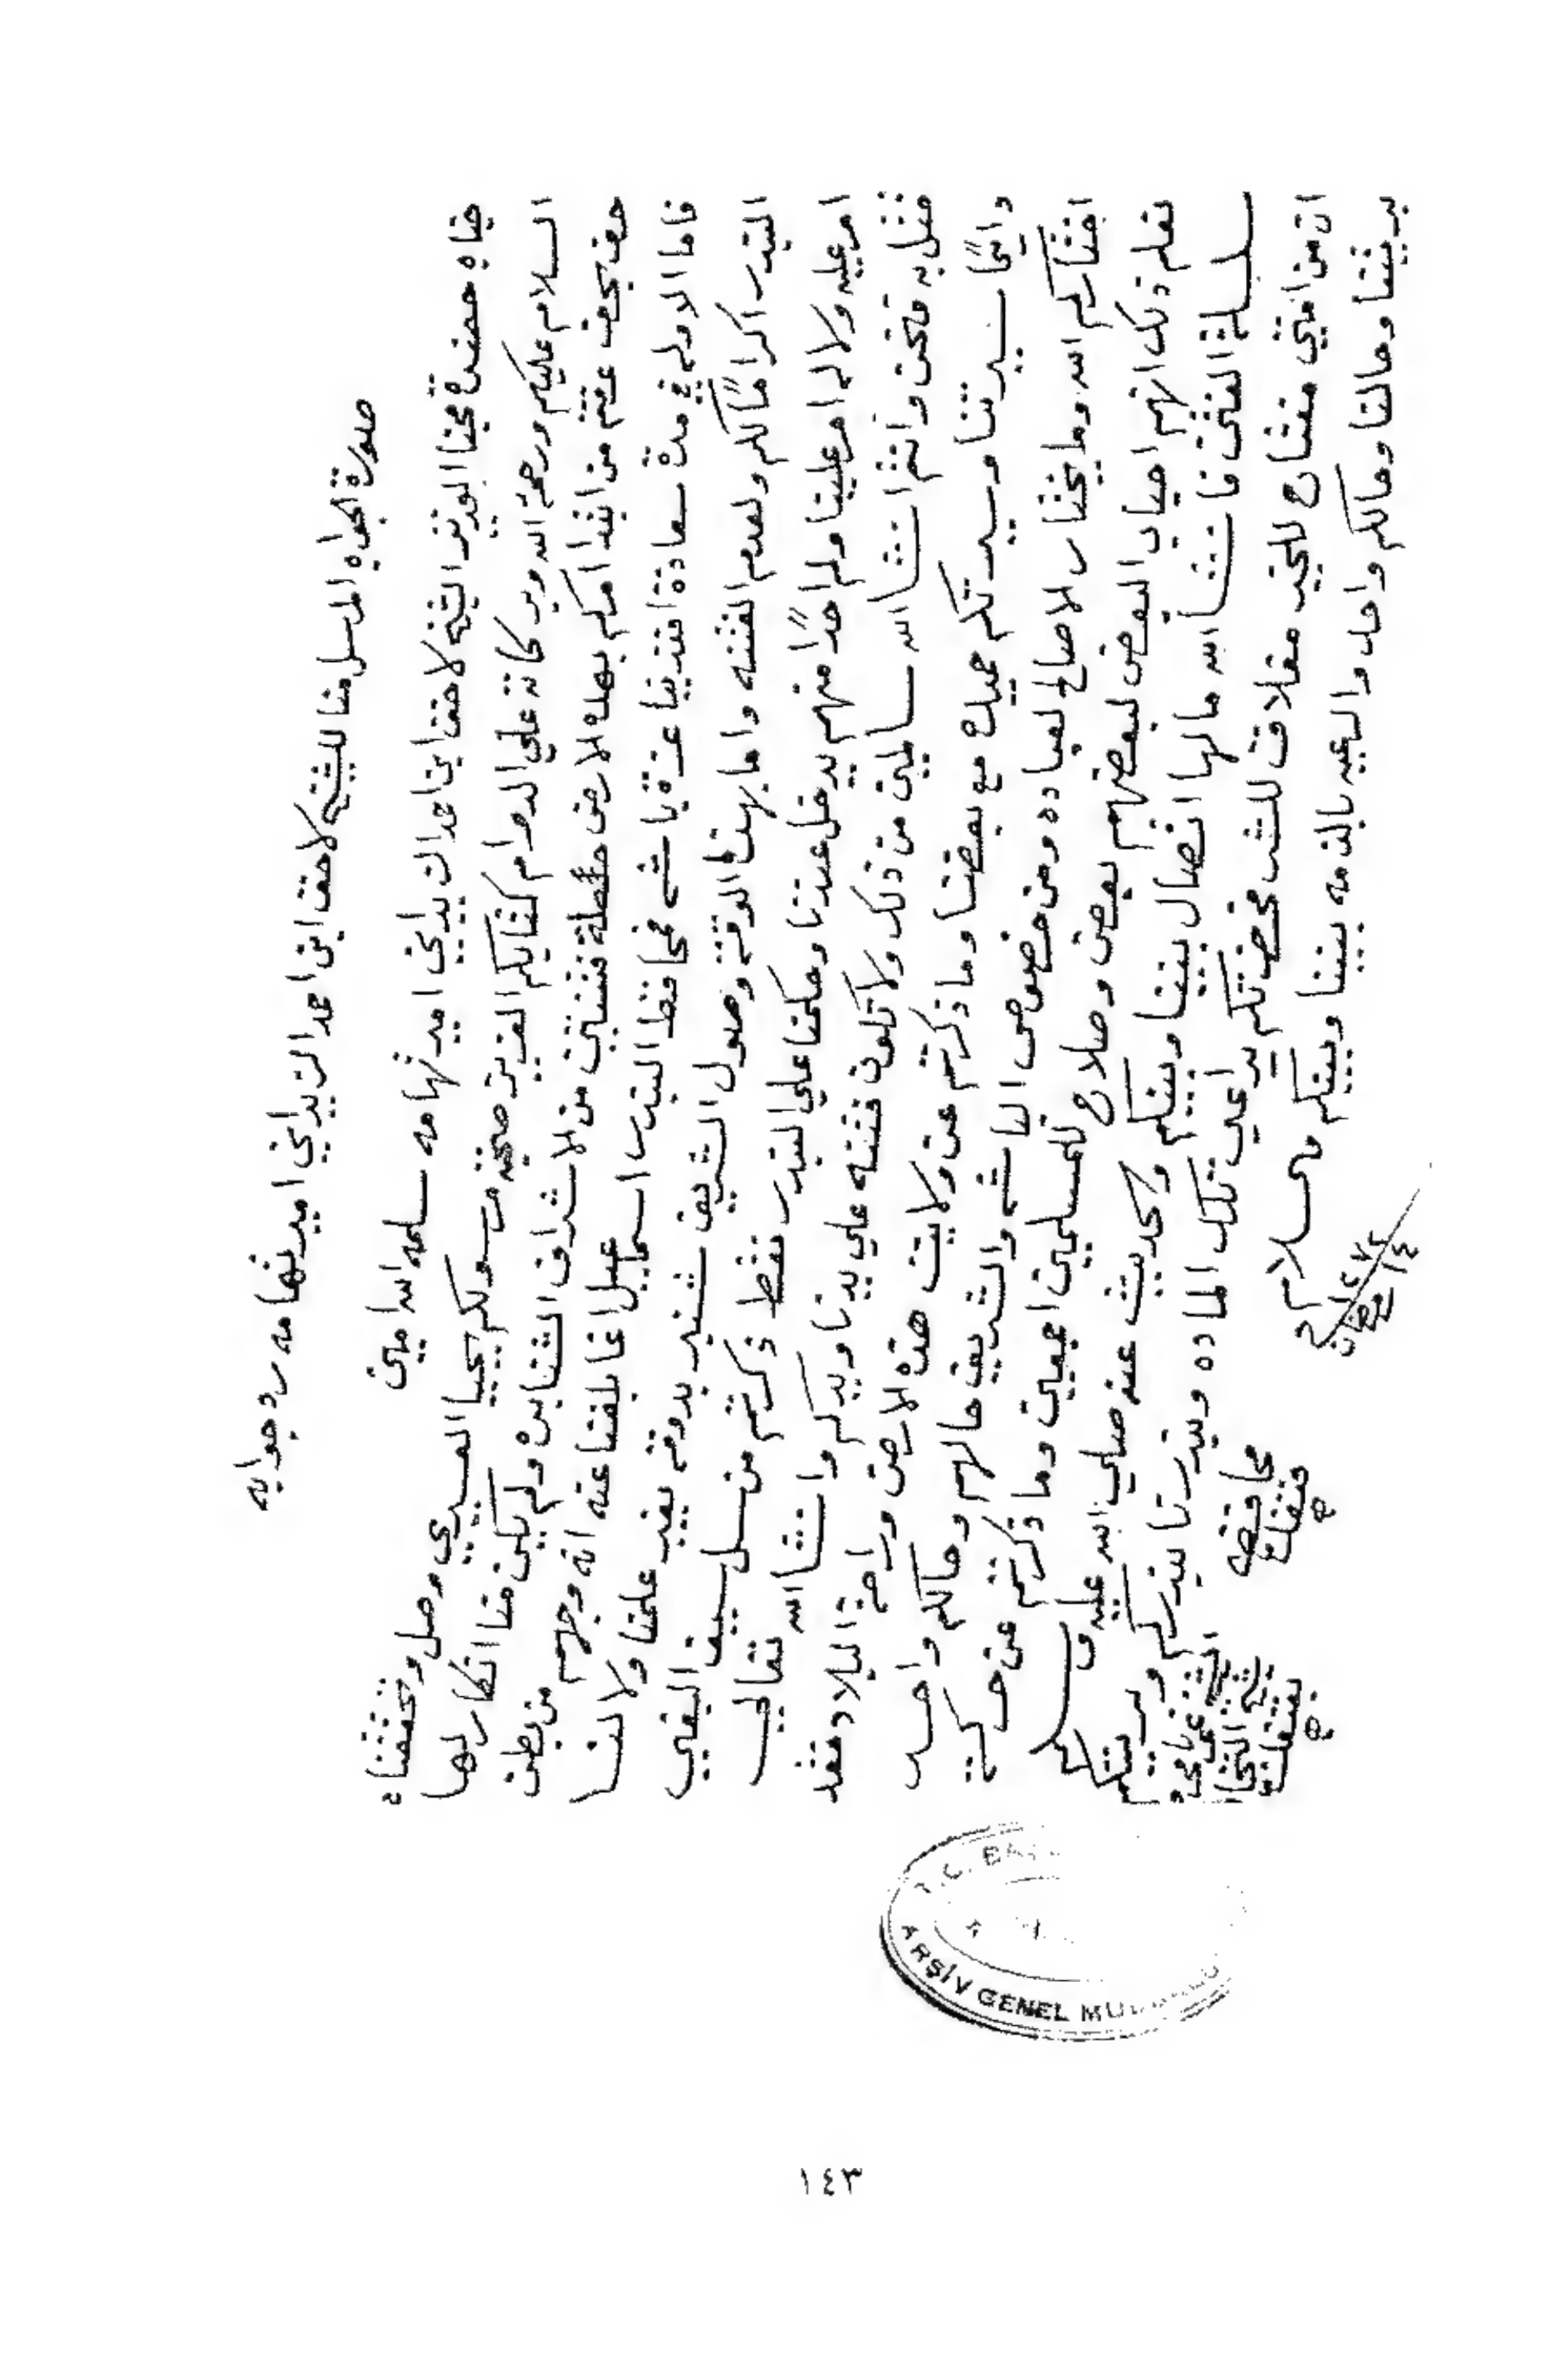 صورة الجواب المرسل منا للشيخ لاحق ابن احمد الزيداني امير تهامه رد جوابه
جناب حضرة محبنا العزيز الشيخ لاحق ابن احمد الزيداني امير تهامه سلمه الله امين
السلام عليكم ورحمة الله وبركاته على الدوام كتابكم العزيز صحبة مرسولكم يحيا العسيري وصل وتحققناه
عرفتم من ابتدا امركم بهذه الارض حاصلة فتنتين من الاشراف الشنابره ولم يكن منا انكار لها
فاما الاوله في مدت سعادة افندينا عزة باشه محافظ البندر اسماعيل اغا بلغنا عنه انه وجههم من بطن
البندر اكرامًا لكم ولعدم الفتنه واما بهذا الوقته وصول الشريف شنبر بدوقه بغير علمنا ولا لنا
امر عليه ولا له امر علينا ولم احدًا منهم يدخل عندنا وحكمنا على البندر فقط ذكرتم من سل سيف البغي
قتل به فنحن وانتم انشا الله سالمين من ذلك ولا تكون فتنه على يدنا ويدكم وانشا الله تعالى
دايمًا سيرتنا وسيرتكم حميده مع بعضنا وما ذكرتم عن ولايت هذه الارض وراحة البلاد فقد
اختاركم الله وما يختار الا صالح لعباده ومن خصوص الباشه والشريف حالهم وحالكم واحد
نعلم ذلك انهم احباب البعض لبعضهم بعض وصلاح للمسلمين اجمعين وما ذكرتم عن حركة
سلسلة الفتن فانشا الله مالها اتصال بيننا وبينكم وكحديث عنه صلى الله عليه وسلم
ان من امتي مفتاح للخير مغلاق للشر فحضرتكم يراعي تلك الماده وبندرنا بندركم وبريتكم
بريتنا وحالنا وحالكم واحد والعيب بالذمه بيننا وبينكم والسلام
محافظ
قنفذه
١٤٣
ARŞİV GENEL